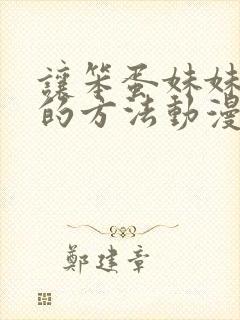 讓笨蛋妹妹
的方法動漫
鄭建章